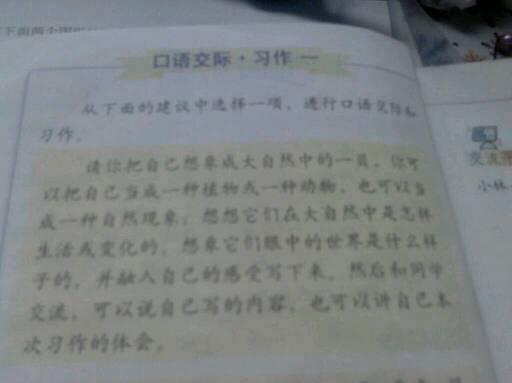 下面两个图
口语交际·习作一
从下面的建议中选择一项，进行口语交际和
习作。
请你把自己想象成大自然中的一员，你可
以把自己当成一种植物或一种动物，也可以当
成一种自然现象；想想它们在大自然中是怎样
生活或变化的，想象它们眼中的世界是什么样
子的，并融入自己的感受写下来，然后和同学
交流，可以说自己写的内容，也可以讲自己本
次习作的体会。
交流
小林